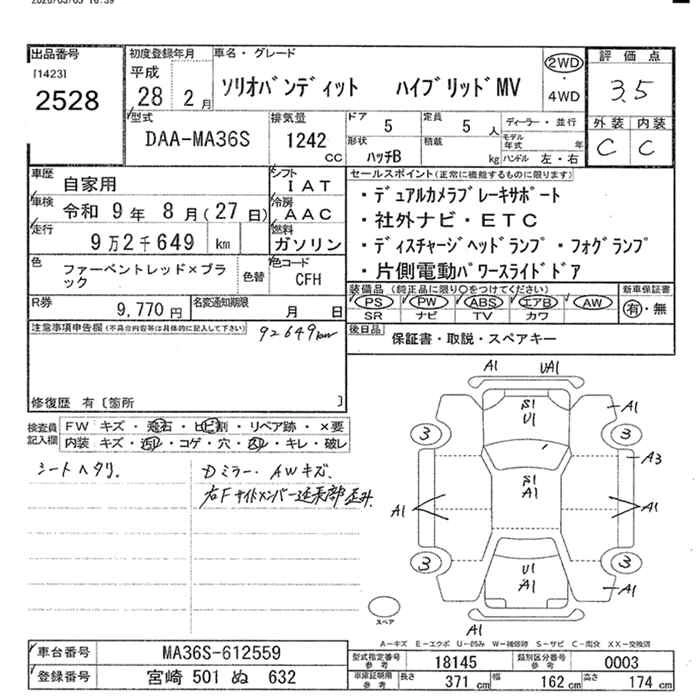 出品番号
[1423]
2528
初度登録年月
平成
28 2月
車名・グレード
ソリオバンディット ハイブリッドMV
2WD
・
4WD
評価点
3.5
外装 内装
C C
型式
DAA-MA36S
排気量
1242
cc
ドア 5 定員 5 人
形状 ハッチB 積載 kg
ディーラー・並行
モデル年式 年
ハンドル 左・右
車歴
自家用
シフト
IAT
車検
令和 9年 8月(27日)
冷房
AAC
走行
9万2千649 km
燃料
ガソリン
色
ファーベントレッド×ブラック
色替
色コード
CFH
R券
9,770円
名変通知期限
月 日
セールスポイント(正常に機能するものに限ります)
・デュアルカメラブレーキサポート
・社外ナビ・ETC
・ディスチャージヘッドランプ・フォグランプ
・片側電動パワースライドドア
装備品(純正品に限り○をつけてください)
PS PW ABS エアB AW
SR ナビ TV カワ
新車保証書
有・無
後日品
保証書・取説・スペアキー
注意事項申告欄(不具合内容等は具体的に記入して下さい)
92649km
修復歴 有〔箇所 〕
検査員記入欄
FW キズ・飛石・ヒビ割・リペア跡・×要
内装 キズ・汚レ・コゲ・穴・スレ・キレ・破レ
シートヘタリ.
Dミラー・AWキズ.
右Fサイドメンバー延長部
A1 UA1
S1
U1
A1
3 3
A3
S1
A1
A1 A1
3 3
U1
A1
A1
A1
スペア
A-キズ E-エクボ U-凹み W-補修跡 S-サビ C-腐食 XX-交換済
車台番号
MA36S-612559
登録番号
宮崎 501 ぬ 632
型式指定番号
参考
18145
類別区分番号
参考
0003
車庫証明用
参考
長さ 371 cm 幅 162 cm 高さ 174 cm